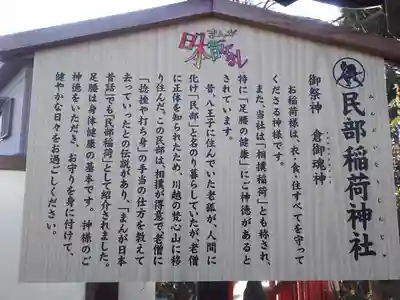 まんが
日本昔ばなし
民部稲荷神社
みんぶいなりじんじゃ
御祭神 倉御魂神
お稲荷様は、衣・食・住すべてを守って
くださる神様です。
また、当社は「相撲稲荷」とも称され、
特に「足腰の健康」にご神徳があると
されています。
昔、八王子に住んでいた老狐が、人間に
化け「民部」と名のり暮らしていたが老僧
に正体を知られたため、川越の梵心山に移
り住んだ。この民部は、相撲が得意で老僧に
「捻挫や打ち身」の手当の仕方を教えて
去っていったとの伝説があり、「まんが日本
昔話」でも「民部稲荷」として紹介されました。
足腰は身体健康の基本です。神様のご
神徳をいただき、お守りを身に付けて、
健やかな日々をお過ごしください。